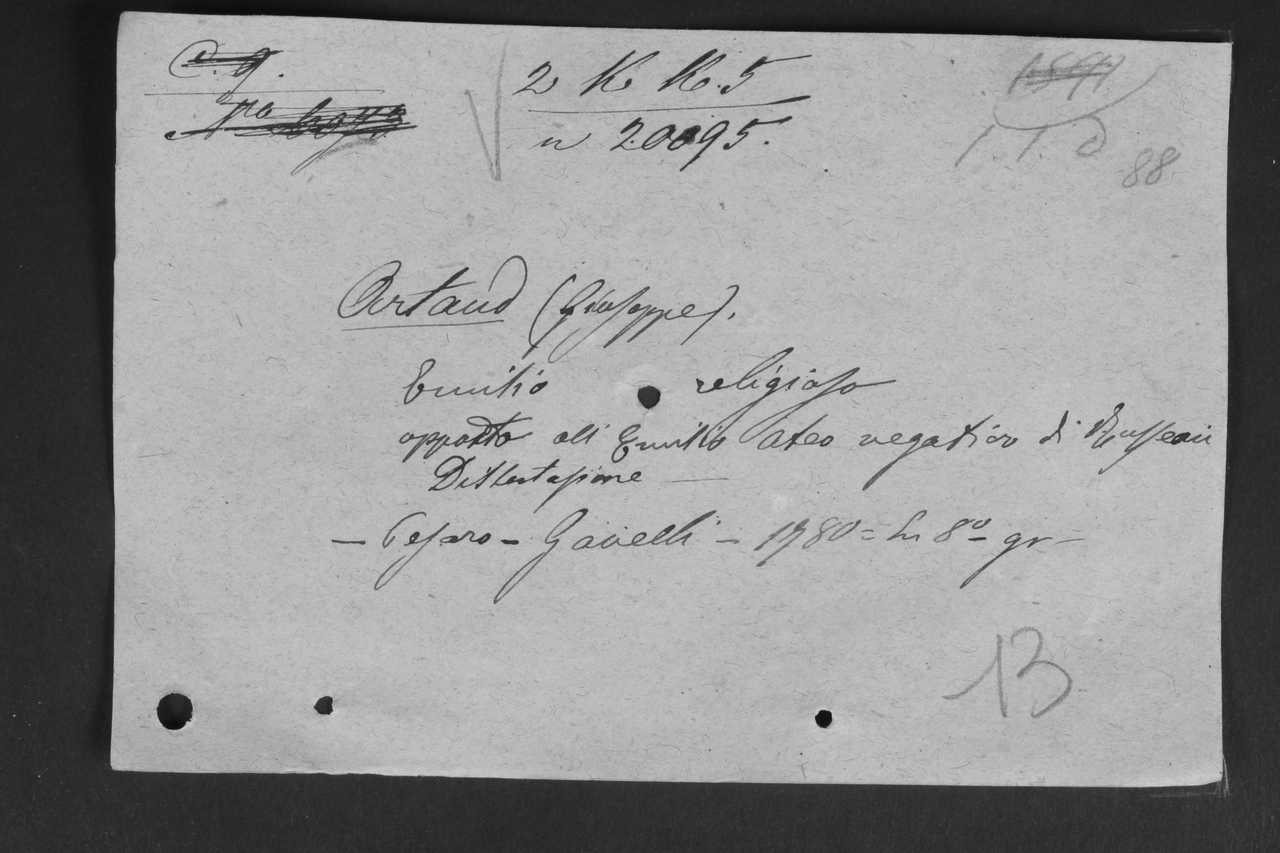 C. g.
2 K K. 5
N.ro
n 20095.
88
Artaud (Giuseppe).
Emilio religioso
opposto all' Emilio ateo negativo di Russeau
Dissertazione —
— Pesaro – Gavelli – 1780 = in 8º gr –
13